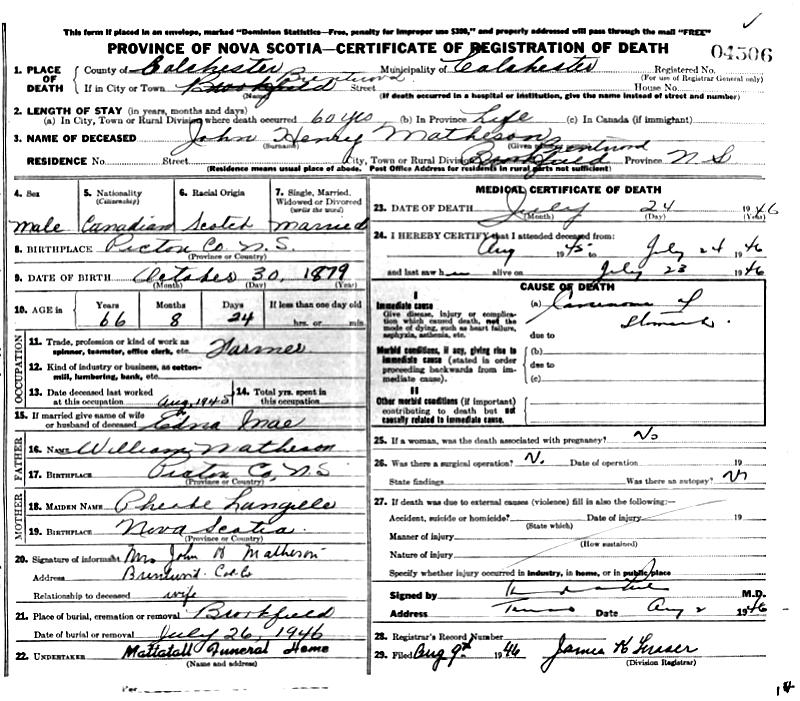 This form if placed in an envelope, marked "Dominion Statistics—Free, penalty for improper use $300," and properly addressed will pass through the mail "FREE"
PROVINCE OF NOVA SCOTIA—CERTIFICATE OF REGISTRATION OF DEATH 04506
1. PLACE OF DEATH { County of Colchester Municipality of Colchester Registered No. (For use of Registrar General only)
If in City or Town Brookfield Brentwood Street House No.
(Name) (If death occurred in a hospital or institution, give the name instead of street and number)
2. LENGTH OF STAY (in years, months and days)
(a) In City, Town or Rural Division where death occurred 60 yrs (b) In Province Life (c) In Canada (if immigrant)
3. NAME OF DECEASED John Henry Matheson
(Surname) (Given names)
RESIDENCE No. Street City, Town or Rural Division Brookfield Brentwood Province N S
(Residence means usual place of abode. Post Office Address for residents in rural parts not sufficient)
4. Sex Male
5. Nationality (Citizenship) Canadian
6. Racial Origin Scotch
7. Single, Married, Widowed or Divorced (write the word) Married
8. BIRTHPLACE Pictou Co N.S.
(Province or Country)
9. DATE OF BIRTH October 30, 1879
(Month) (Day) (Year)
10. AGE in Years 66 Months 8 Days 24 If less than one day old hrs. or min.
OCCUPATION
11. Trade, profession or kind of work as spinner, teamster, office clerk, etc. Farmer
12. Kind of industry or business, as cotton-mill, lumbering, bank, etc.
13. Date deceased last worked at this occupation Aug, 1945
14. Total yrs. spent in this occupation.
15. If married give name of wife or husband of deceased Edna Mae
FATHER
16. NAME William Matheson
17. BIRTHPLACE Pictou Co, N.S.
(Province or Country)
MOTHER
18. MAIDEN NAME Langille
19. BIRTHPLACE Nova Scotia
(Province or Country)
20. Signature of informant Mrs John H Matheson
Address
Relationship to deceased wife
21. Place of burial, cremation or removal Brookfield
Date of burial or removal July 26, 1946
22. UNDERTAKER Mattatall Funeral Home
(Name and address)
MEDICAL CERTIFICATE OF DEATH
23. DATE OF DEATH July 24 1946
(Month) (Day) (Year)
24. I HEREBY CERTIFY that I attended deceased from:
Aug 1945 to July 24 1946
and last saw him alive on July 23 1946
CAUSE OF DEATH
I
Immediate cause
Give disease, injury or complication which caused death, not the mode of dying, such as heart failure, asphyxia, asthenia, etc.
(a) Carcinoma of Stomach
due to
Morbid conditions, if any, giving rise to immediate cause (stated in order proceeding backwards from immediate cause)
(b)
due to
(c)
II
Other morbid conditions (if important) contributing to death but not causally related to immediate cause.
25. If a woman, was the death associated with pregnancy? No
26. Was there a surgical operation? N. Date of operation 19
State findings Was there an autopsy? No
27. If death was due to external causes (violence) fill in also the following:—
Accident, suicide or homicide? Date of injury 19
(State which)
Manner of injury
(How sustained)
Nature of injury
Specify whether injury occurred in industry, in home, or in public place
Signed by M.D.
Address Truro Date Aug 2 1946
28. Registrar's Record Number
29. Filed Aug 9th 1946 James H
(Division Registrar)